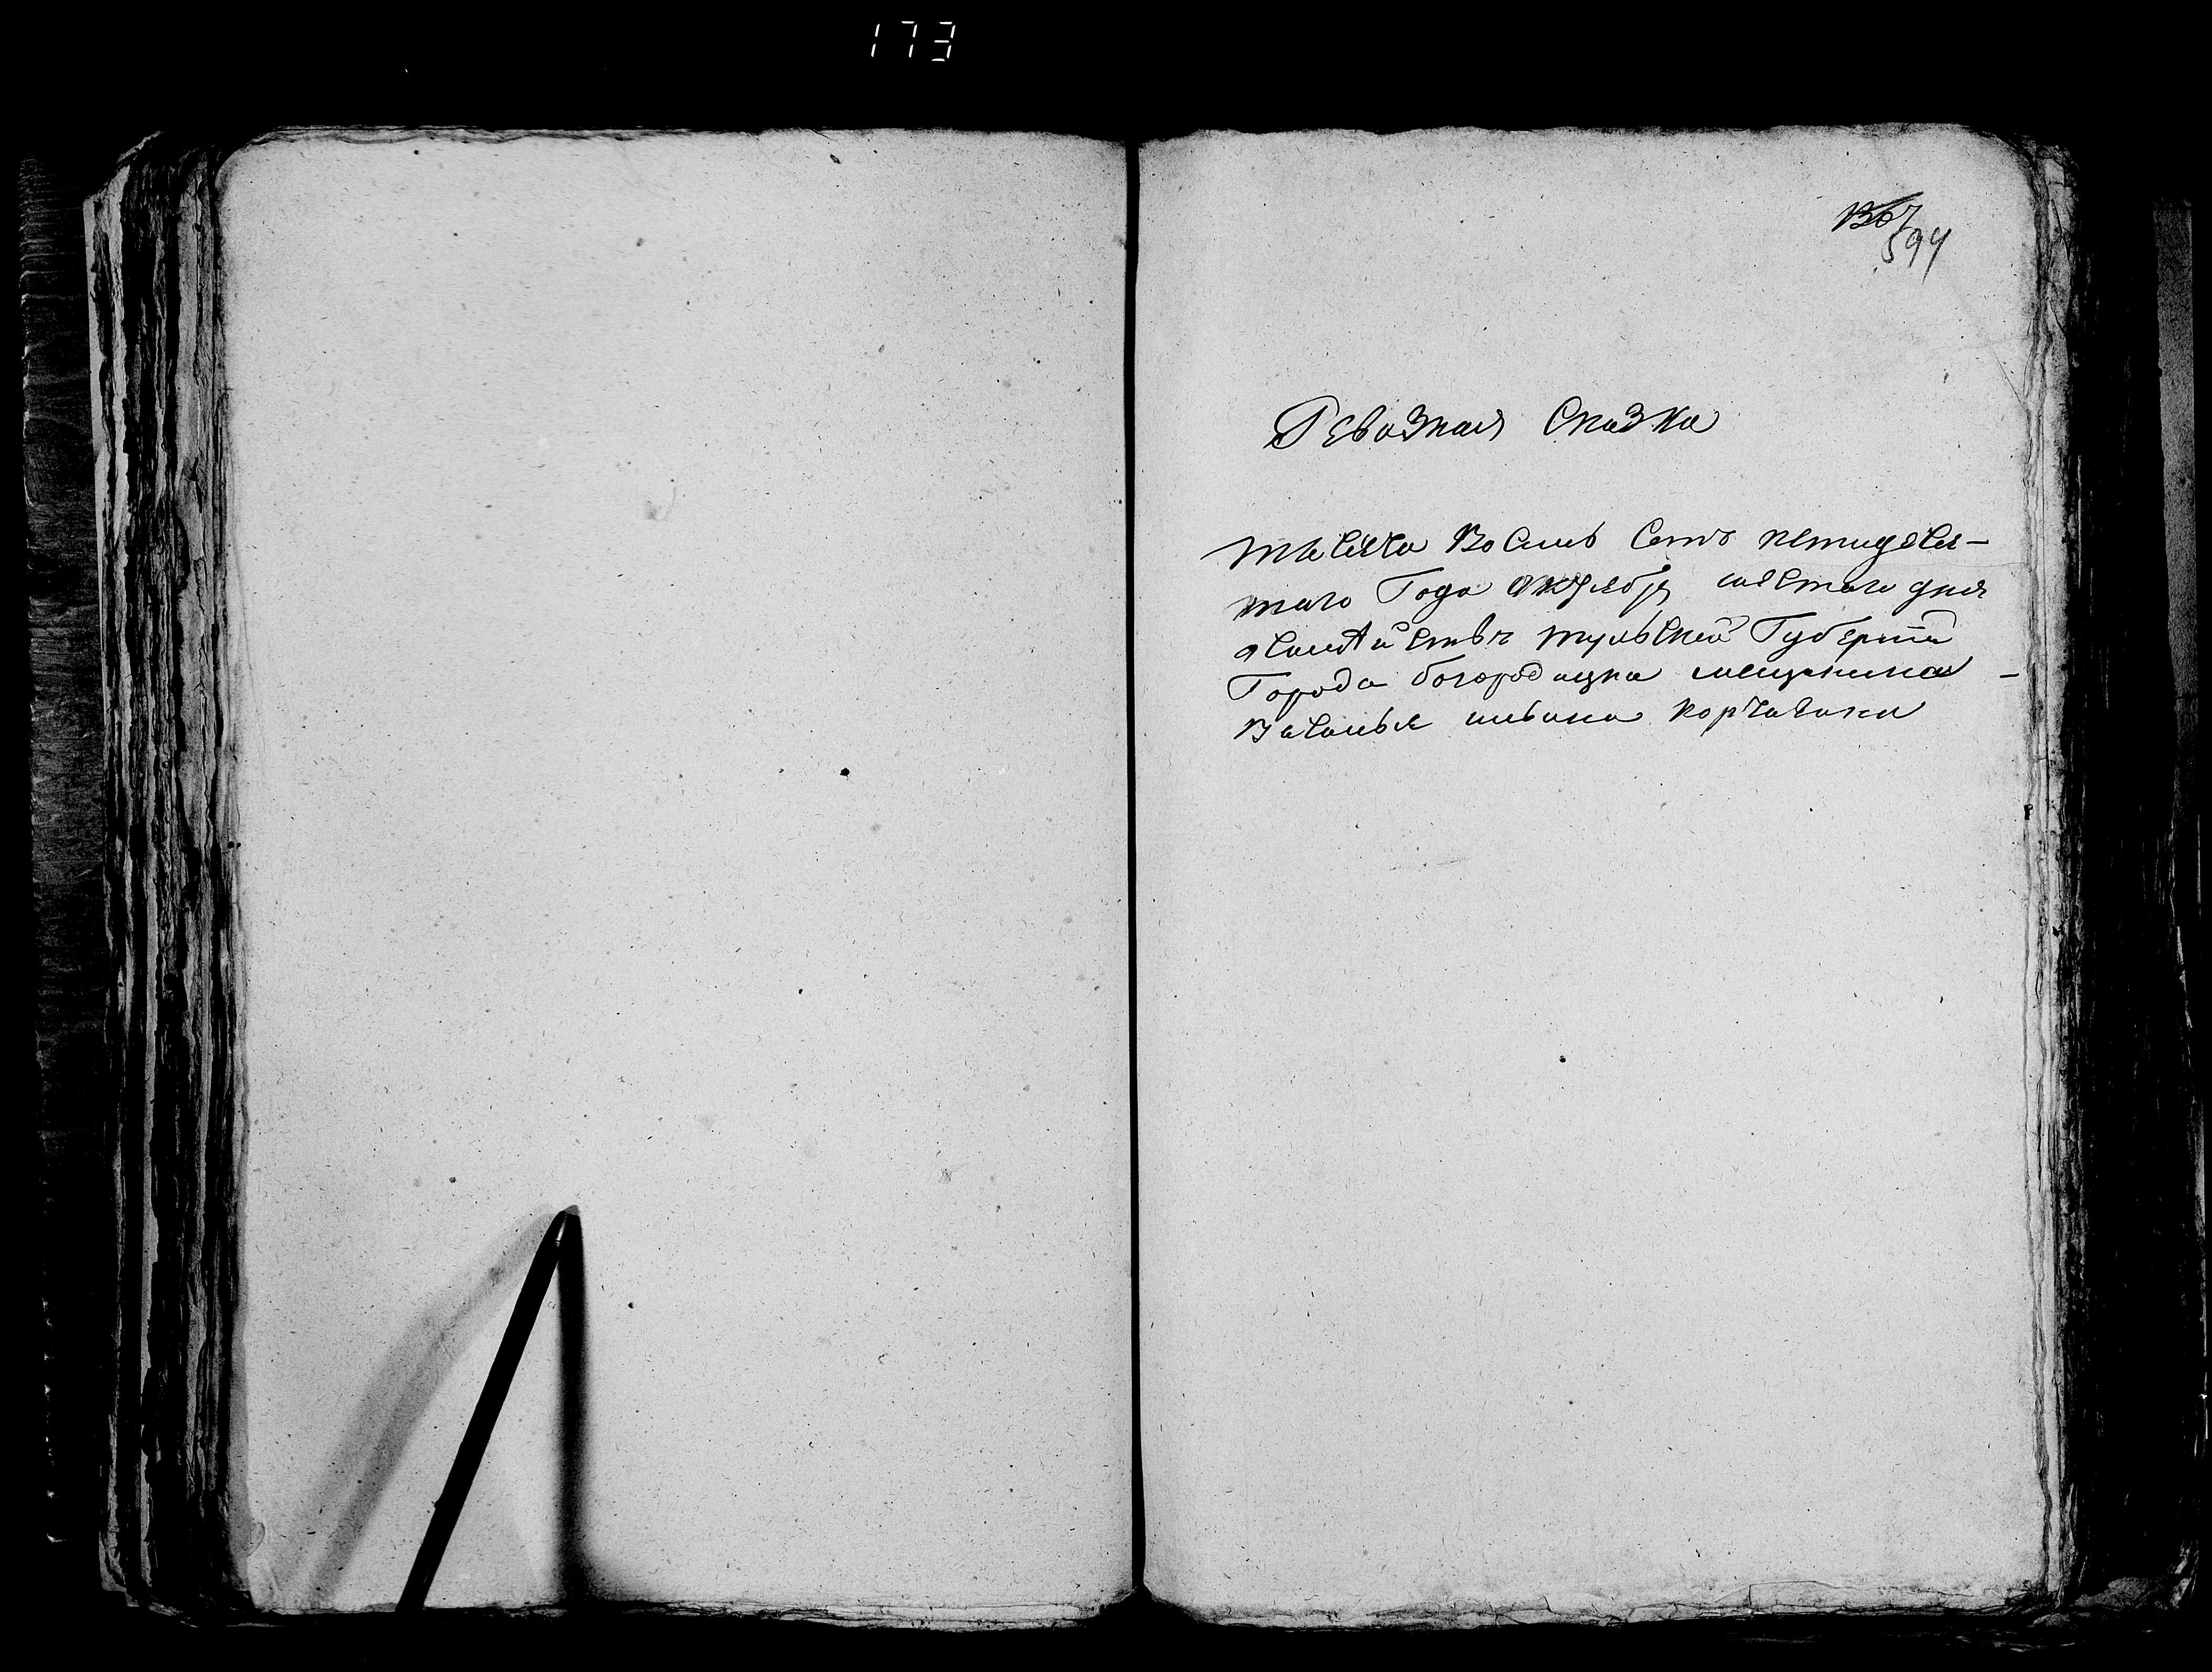 173
1307
594
Ревизная Сказка
тысеча Восемь Сотъ петидеся-
таго Года октября шестаго дня
Тульской Губернiи
Города богородицка мещенина
Василья иванова корчагина